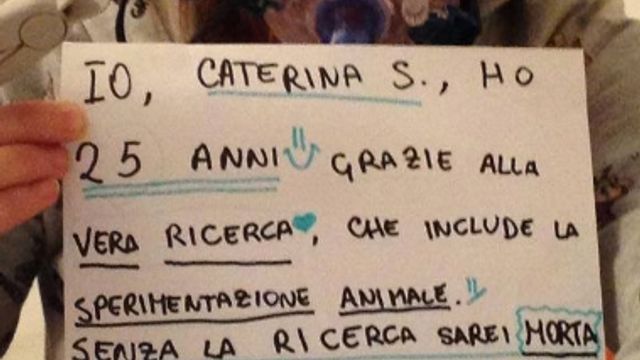 IO, CATERINA S., HO
25 ANNI GRAZIE ALLA
VERA RICERCA, CHE INCLUDE LA
SPERIMENTAZIONE ANIMALE.
SENZA LA RICERCA SAREI MORTA